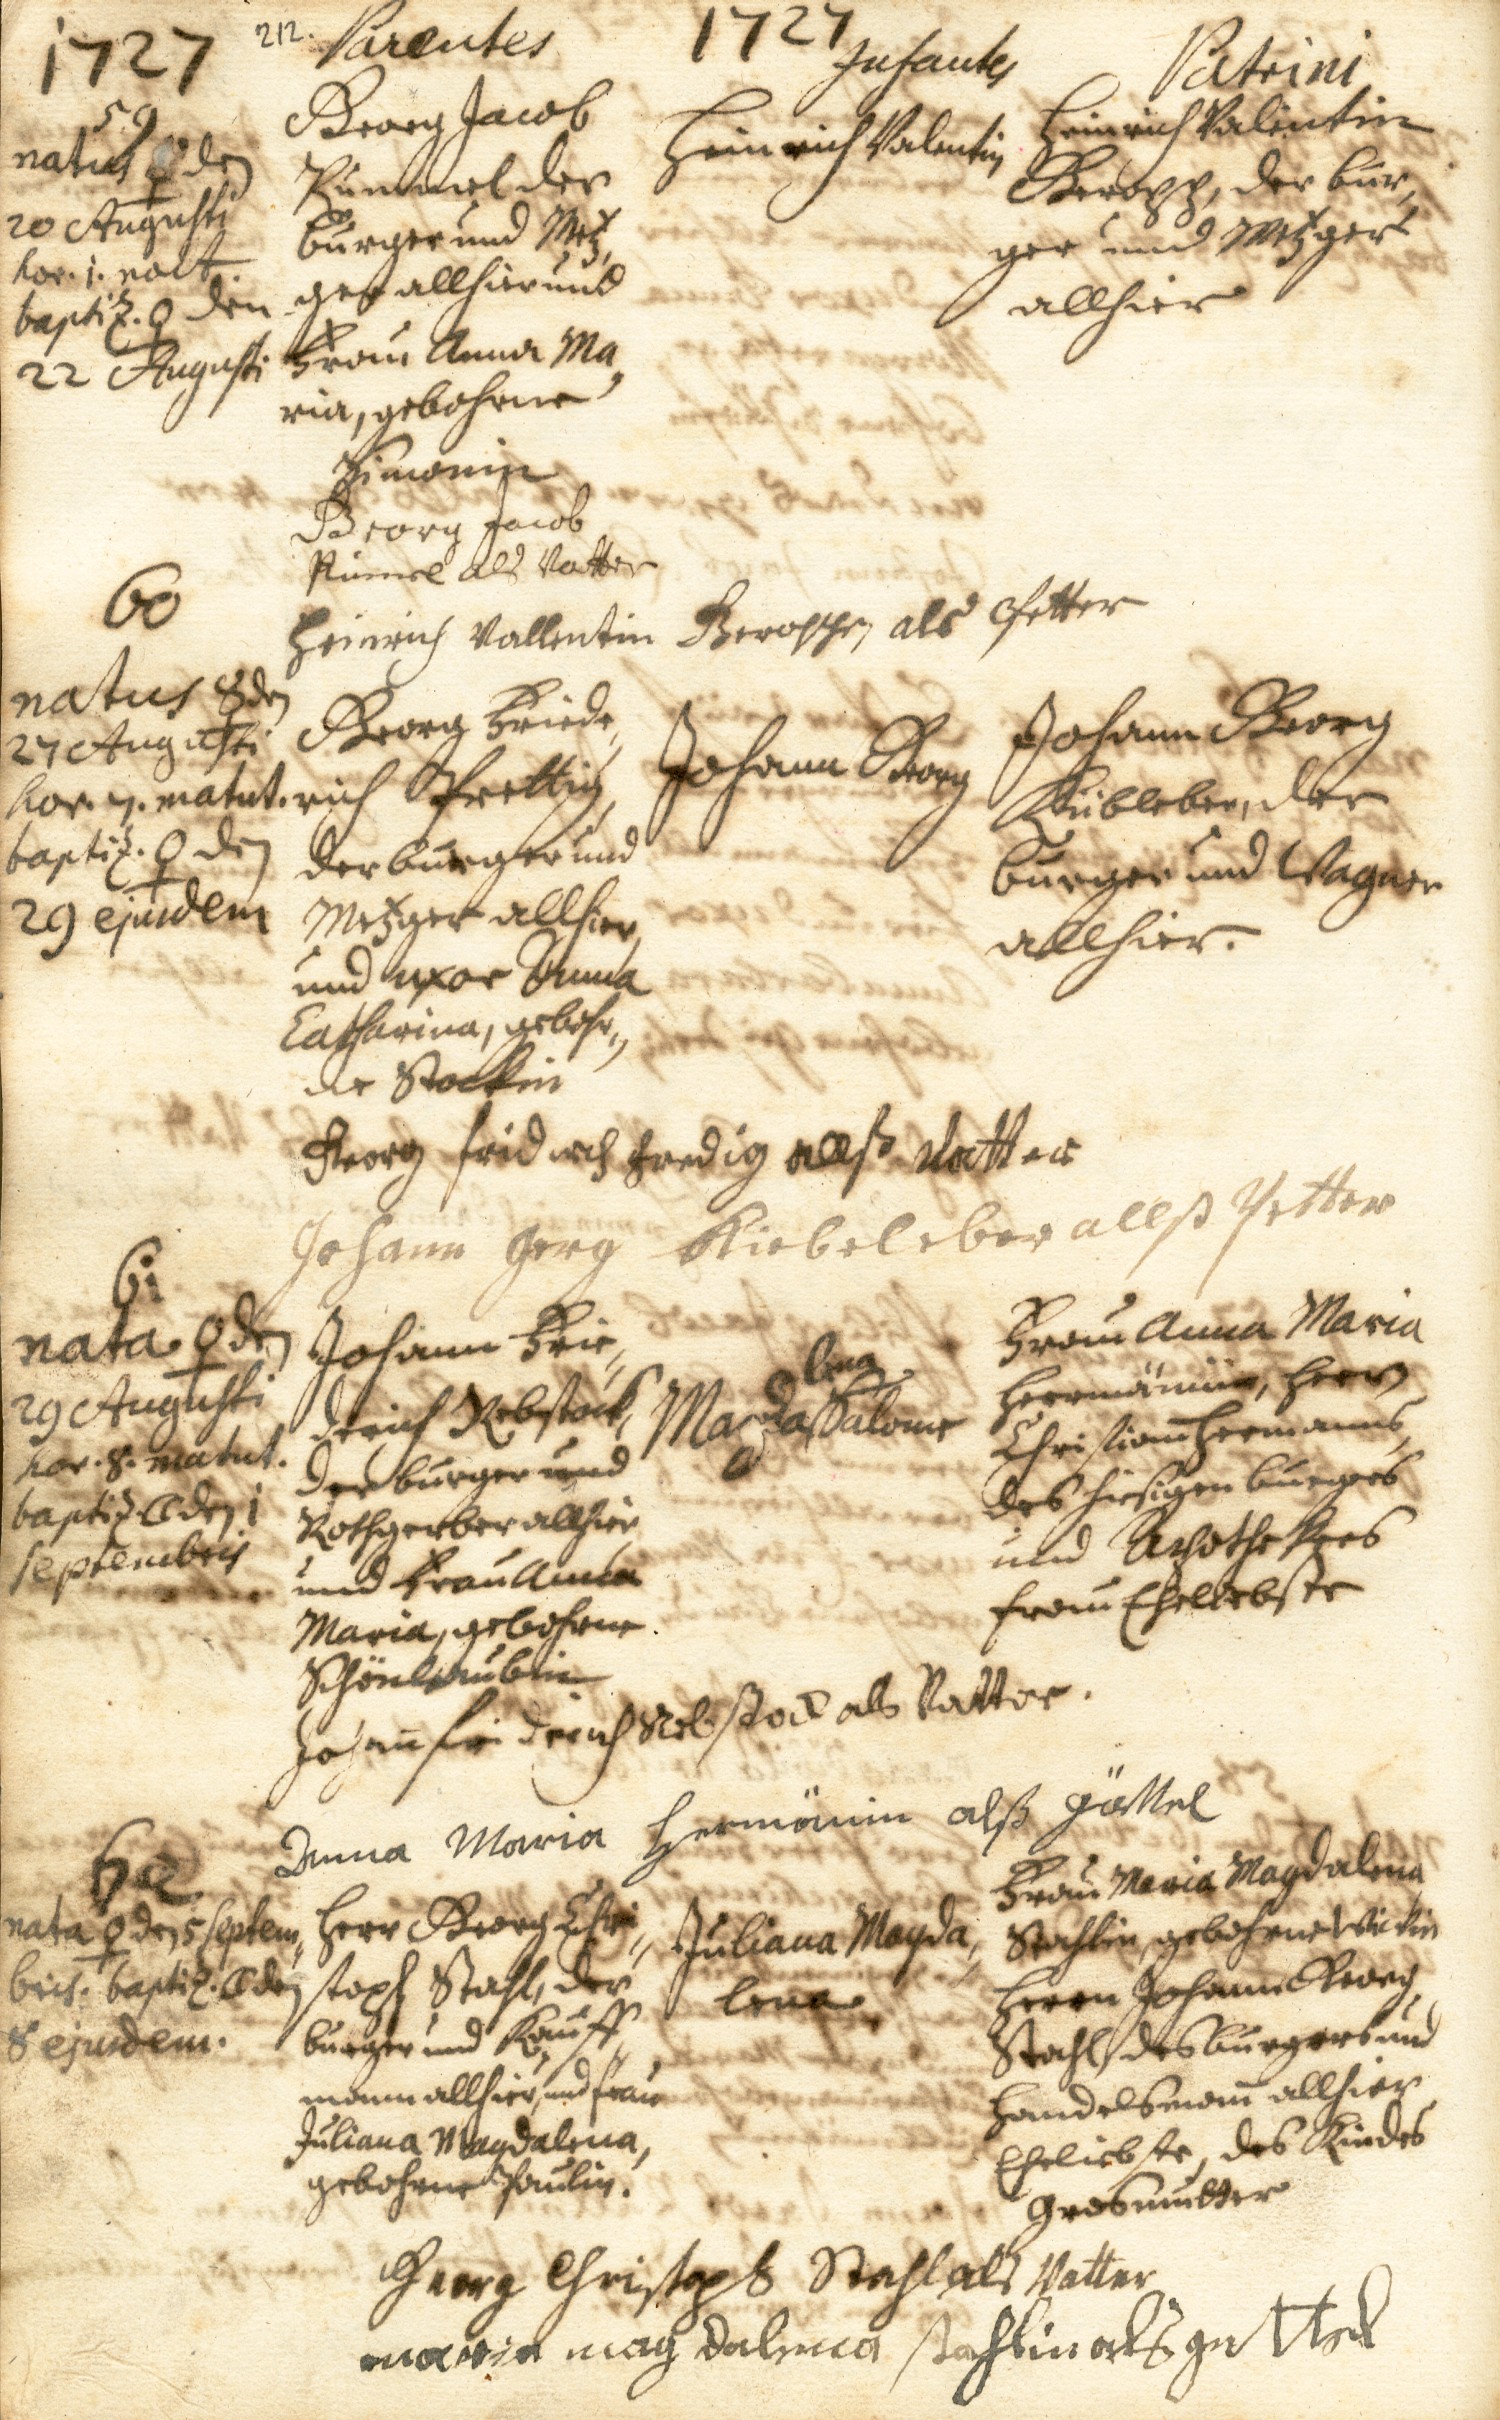 1727 212. Parentes 1727 Infantes Patrini
59
natus ☿ den
20 Augusti
hor. 1. noct.
baptiz. ♀ den
22 Augusti
Georg Jacob
Rümmel der
burger und Metz,
ger allhier und
Frau Anna Ma,
ria, gebohrne
Simonin
Heinrich Valentin
Heinrich Valentin
der bur,
ger und Metzger
allhier
Georg Jacob
Rümel als Vatter
Heinrich Vallentin als Petter
60
natus ☿ den
27 Augusti
hor. 7. matut.
baptiz. ♀ den
29 ejusdem
Georg Friede,,
rich Frettig,
der burger und
Metzger allhier,
und uxor Anna
Catharina, gebohr,,
ne Stockin
Johann Georg
Johann Georg
Kübleber, der
burger und Wagner
allhier.
Georg fridrich fredig allß Vatter
Johann Jerg Kiebeleber allß Petter
61
nata ♀ den
29 Augusti
hor. 8. matut.
baptiz. ☾ den 1
septembris
Johann Frie,,
derich Rebstock,
der burger und
Rothgerber allhier
und Frau Anna
Maria, gebohrne
Schönlaubin
lena
Magda Salome
Frau Anna Maria
Hermännin, Herrn
Christian Hermanns,
des hiesigen burgers
und Apothekers
Frau Eheliebste
Johann friderich Rebstock als Vatter.
Anna Maria Hermänin alß göttel
62
nata ♀ den 5 septem,,
bris. baptiz. ☾ den
8 ejusdem.
Herr Georg Chri,,
stoph Stahl, der
burger und Kauff,
mann allhier, und Frau
Juliana Magdalena,
gebohrne Paulin.
Juliana Magda,,
lena
Frau Maria Magdalena
Stahlin, gebohrne
Herrn Johann Georg
Stahl, des burgers und
Handelsmann allhier
Eheliebste, des Kindes
Grosmutter
Georg Christoph Stahl als Vatter
maria magdalena stahlin als